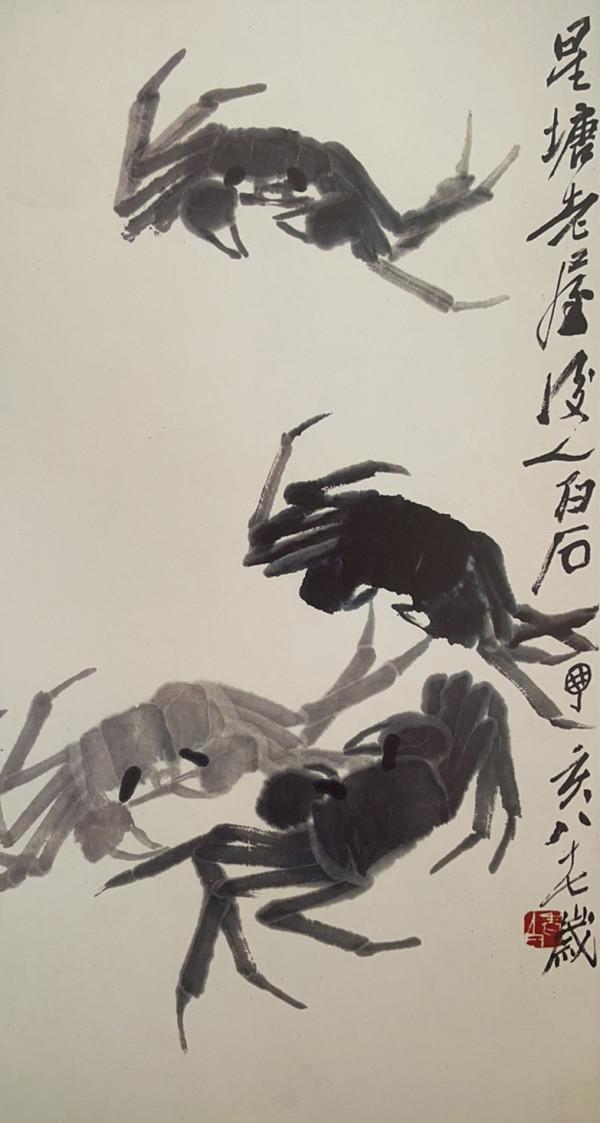 星塘老屋後人白石亥八十七歲